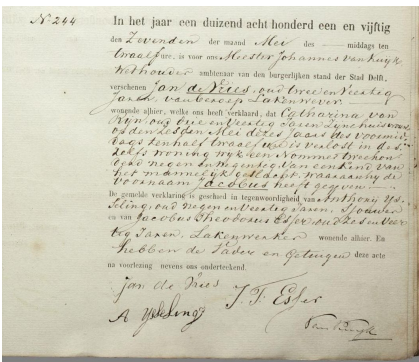 No. 244
In het jaar een duizend acht honderd een en vijftig
den Zevenden der maand Mei des middags ten
twaalf ure, is voor ons Meester Johannes van Kuyk
Wethouder ambtenaar van den burgerlijken stand der Stad Delft,
verschenen Jan de Vries, oud twee en veertig
Jaren, van beroep Lakenwever
wonende alhier, welke ons heeft verklaard, dat Catharina van
Ryn, oud drie en veertig Jaren Zyne huisvrouw
op den Zesden Mei dezes Jaars des voormid-
dags ten half twaalf ure is verlost in des-
zelfs woning wyk een Nommer twee hon-
derd negen en negentig van een kind van
het mannelyk geslacht, waaraan hy de
voornaam Jacobus heeft gegeven
De gemelde verklaring is geschied in tegenwoordigheid van Anthony Ys-
seling, oud negen en veertig Jaren,
en van Jacobus Theodorus Esser, oud zes en veer-
tig Jaren, Lakenwerker wonende alhier. En
hebben de Vader en Getuigen deze acte
na voorlezing nevens ons onderteekend.
Jan de Vries
J. T. Esser
A Ysseling